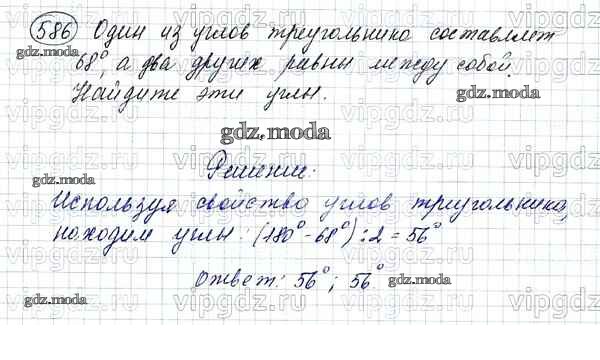 586 Один из углов треугольника составляет
gdz.moda
68°, а два других равны между собой.
Найдите эти углы.
gdz.moda
gdz.moda
Решение:
gdz.moda
Используя свойство углов триугольника,
находим углы: (180° - 68°) : 2 = 56°
gdz.moda
Ответ: 56°; 56°
gdz.moda
gdz.moda